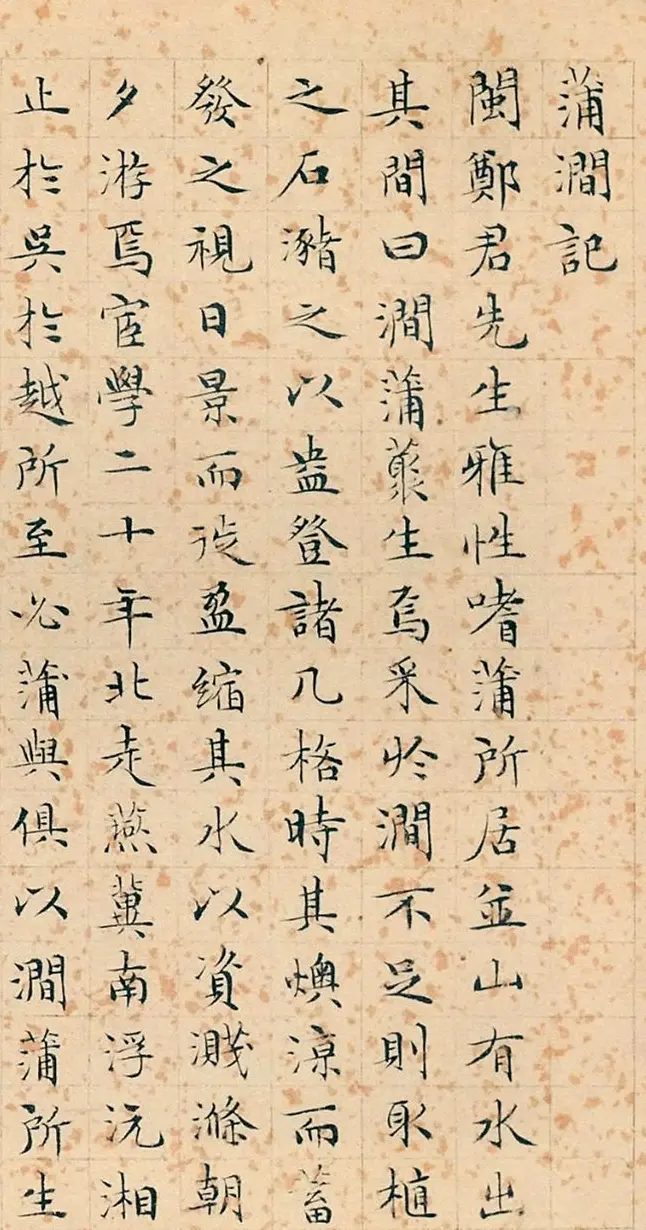 蒲澗記
閩鄭君先生雅性嗜蒲所居並山有水出
其間曰澗蒲叢生焉采於澗不足則取植
之石瀦之以盎登諸几格時其燠涼而蓄
發之視日景而徙盈縮其水以資濺滌朝
夕游焉宦學二十年北走燕冀南浮沅湘
止於吳於越所至必蒲與俱以澗蒲所生